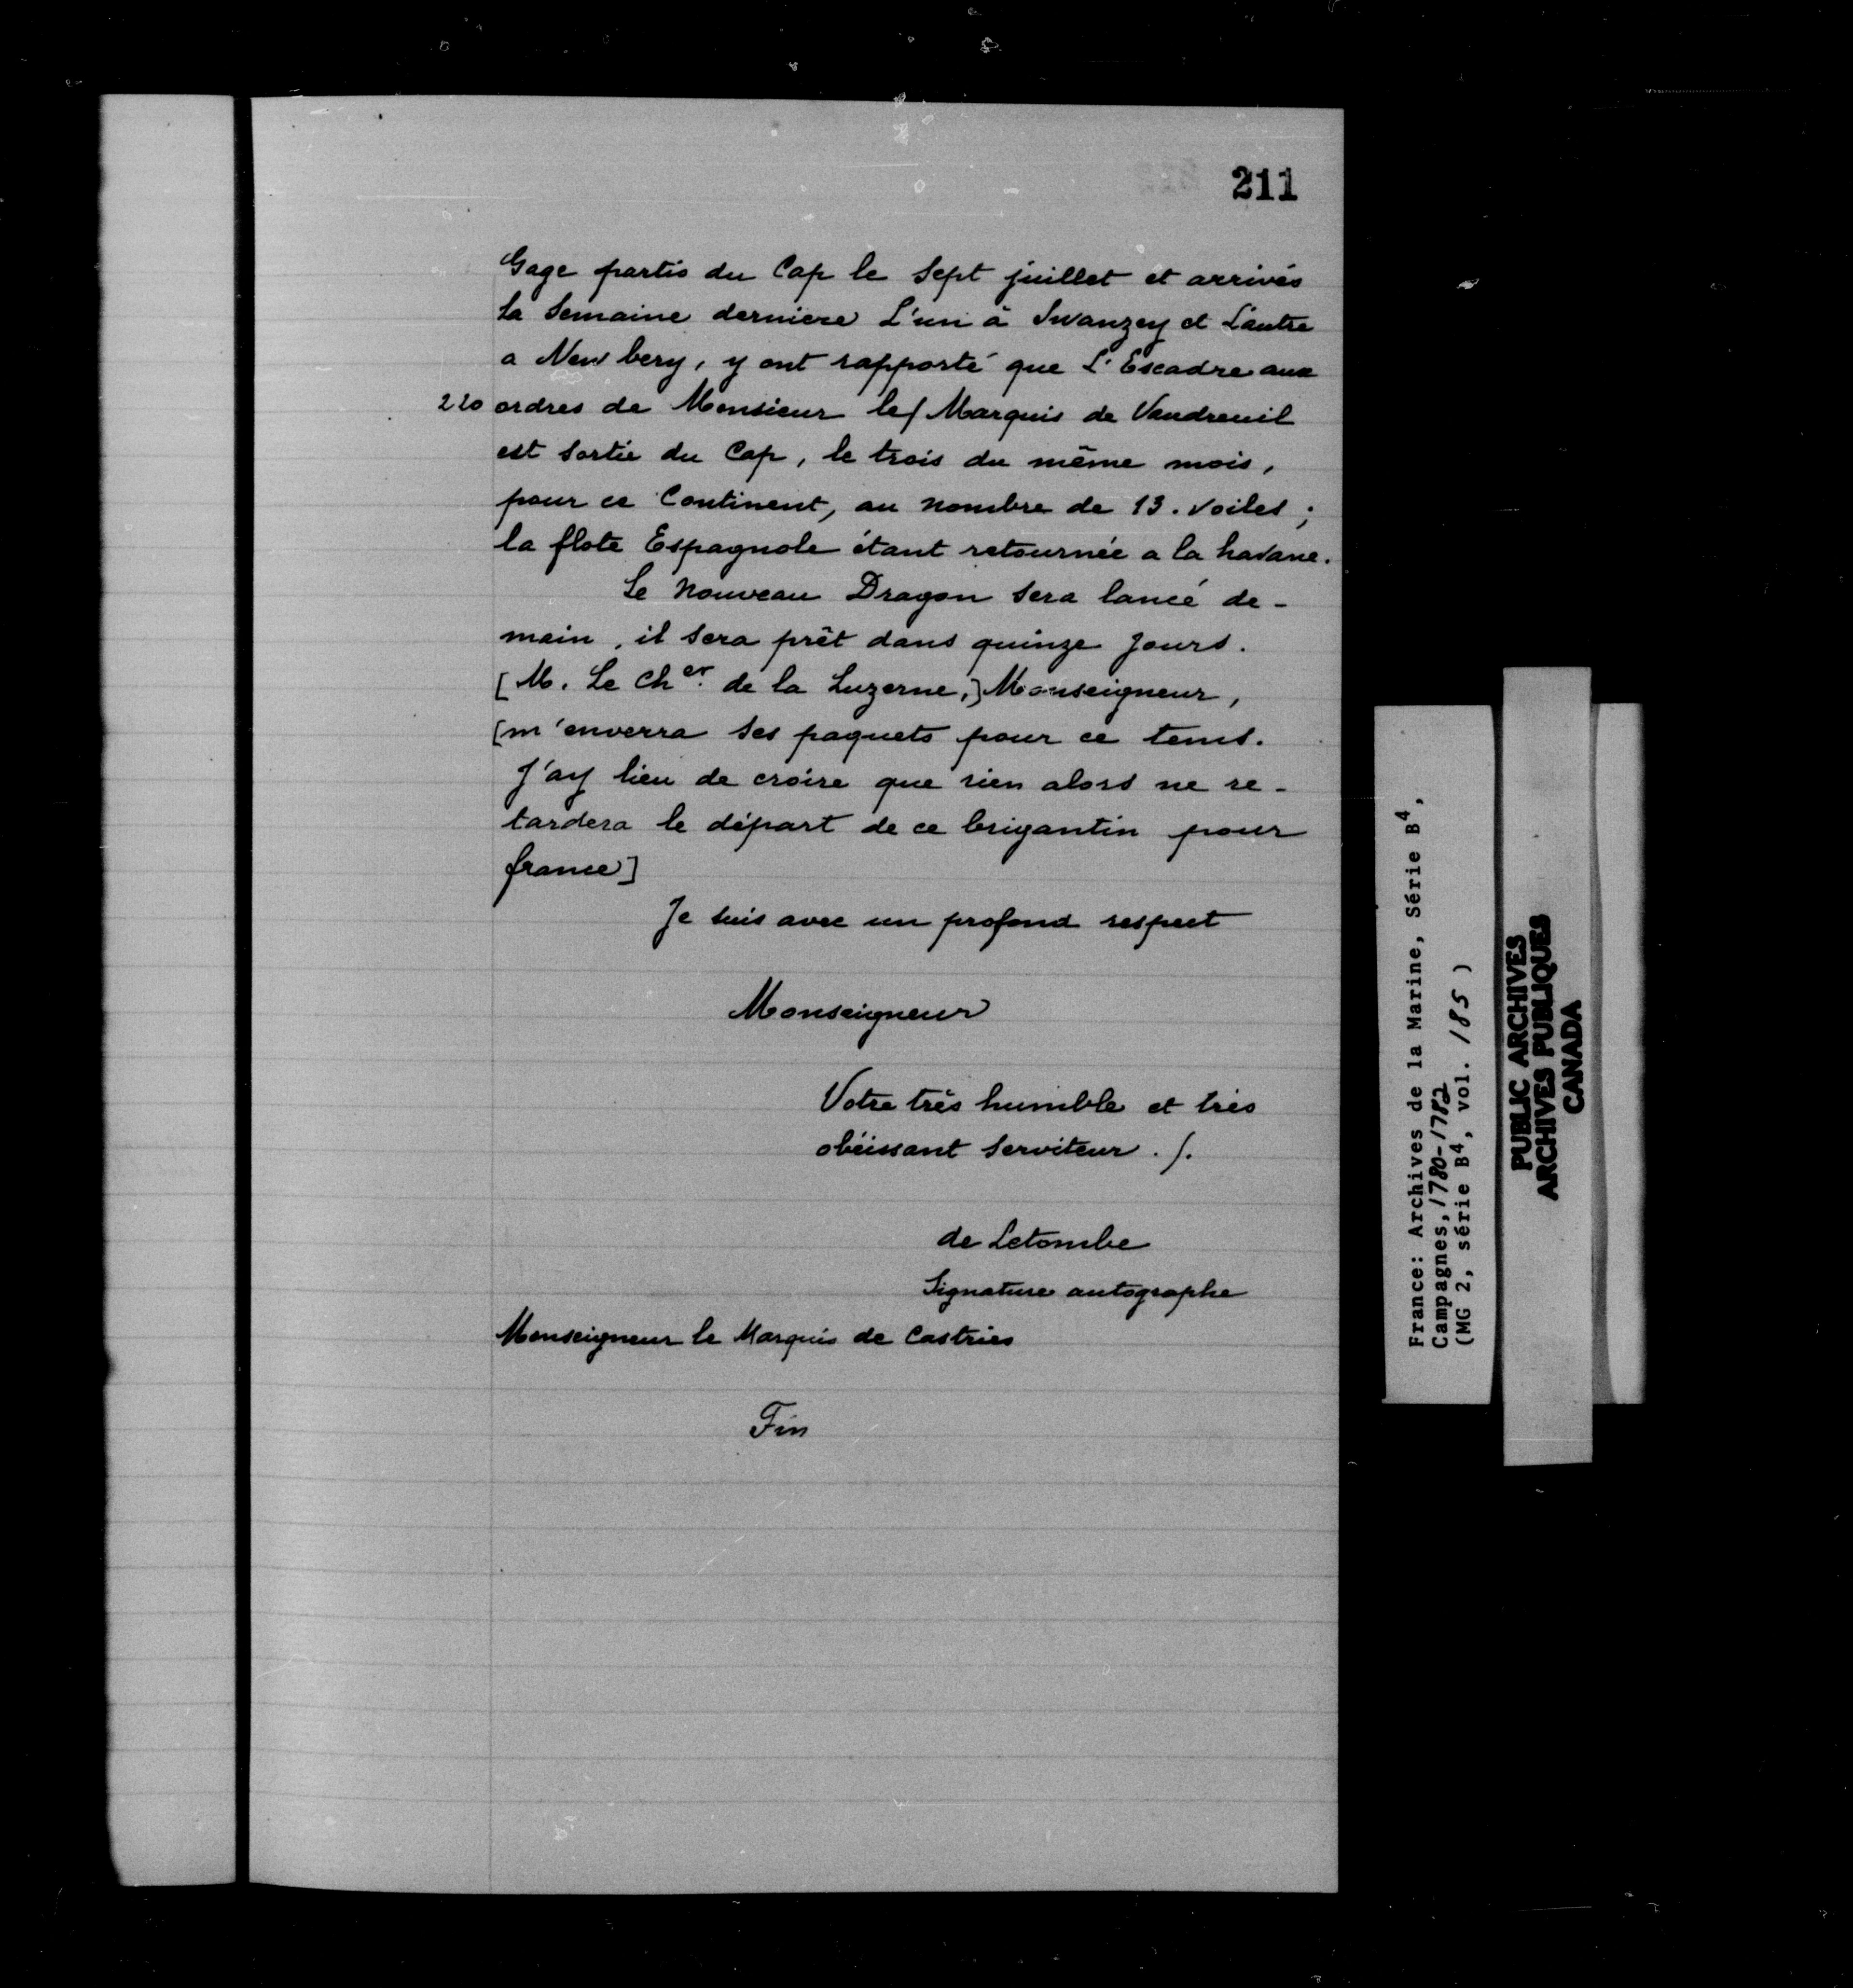 211
Gage partis du Cap le Sept juillet et arrivés
la Semaine derniere L'un à Swanzey et L'autre
a New bery, y ont rapporté que L'Escadre aux
220 ordres de Monsieur le/ Marquis de Vaudreuil
est Sortie du Cap, le trois du même mois,
pour ce Continent, au nombre de 13. voiles ;
la flote Espagnole étant retournée a la havane.
Le Nouveau Dragon Sera lancé de-
main, il Sera prêt dans quinze Jours.
[M. Le Cher. de la Luzerne,] Monseigneur,
[m'enverra Ses paquets pour ce tems.
J'ay lieu de croire que rien alors ne re-
tardera le départ de ce brigantin pour
france]
Je suis avec un profond respect
Monseigneur
Votre très humble et très
obéissant Serviteur ./.
de Letombe
Signature autographe
Monseigneur le Marquis de Castries
Fin
France: Archives de la Marine, Série B4,
Campagnes, 1780-1782
(MG 2, série B4, vol. 185 )
PUBLIC ARCHIVES
ARCHIVES PUBLIQUES
CANADA